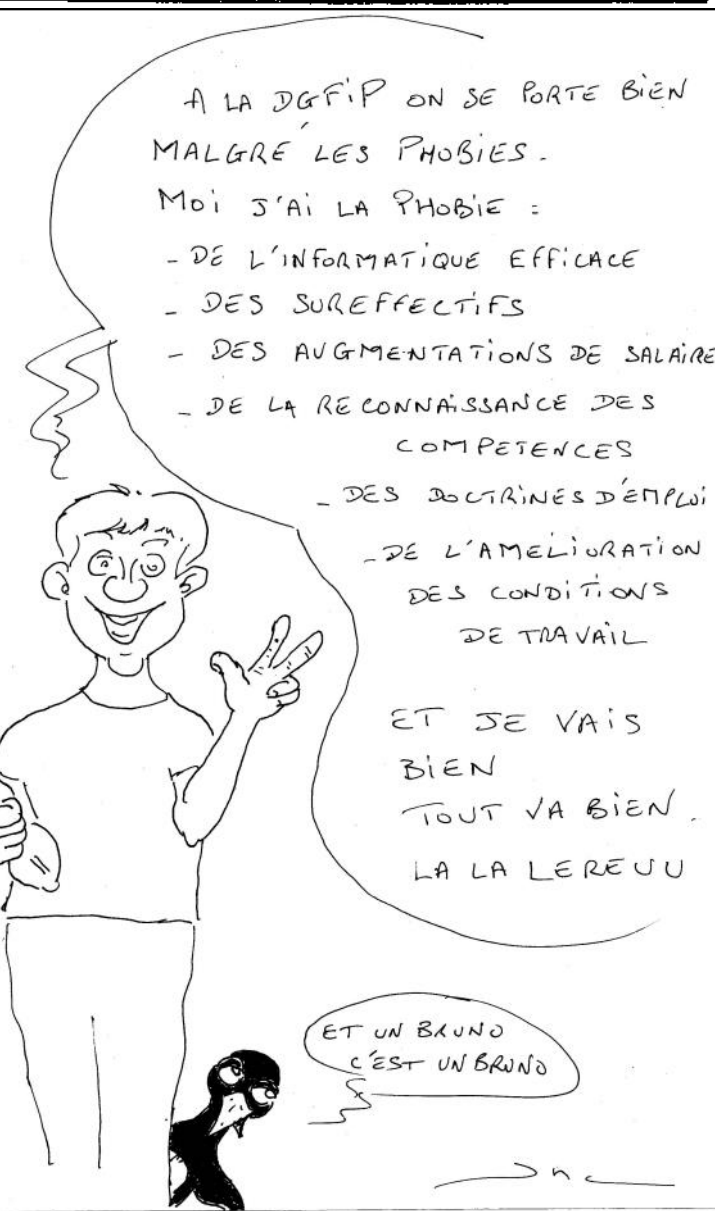 A LA DGFiP ON SE PORTE BiEN
MALGRÉ LES PHOBIES.
MOi J'Ai LA PHOBiE :
- DE L'INFORMATiQUE EFFiCACE
- DES SUREFFECTiFS
- DES AUGMENTATiONS DE SALAiRE
- DE LA RECONNAiSSANCE DES
COMPETENCES
- DES DOCTRiNES D'EMPLOi
- DE L'AMELiORATiON
DES CONDiTiONS
DE TRAVAiL
ET JE VAiS
BiEN
TOUT VA BiEN.
LA LA LEREUU
ET UN BRUNO
C'EST UN BRUNO